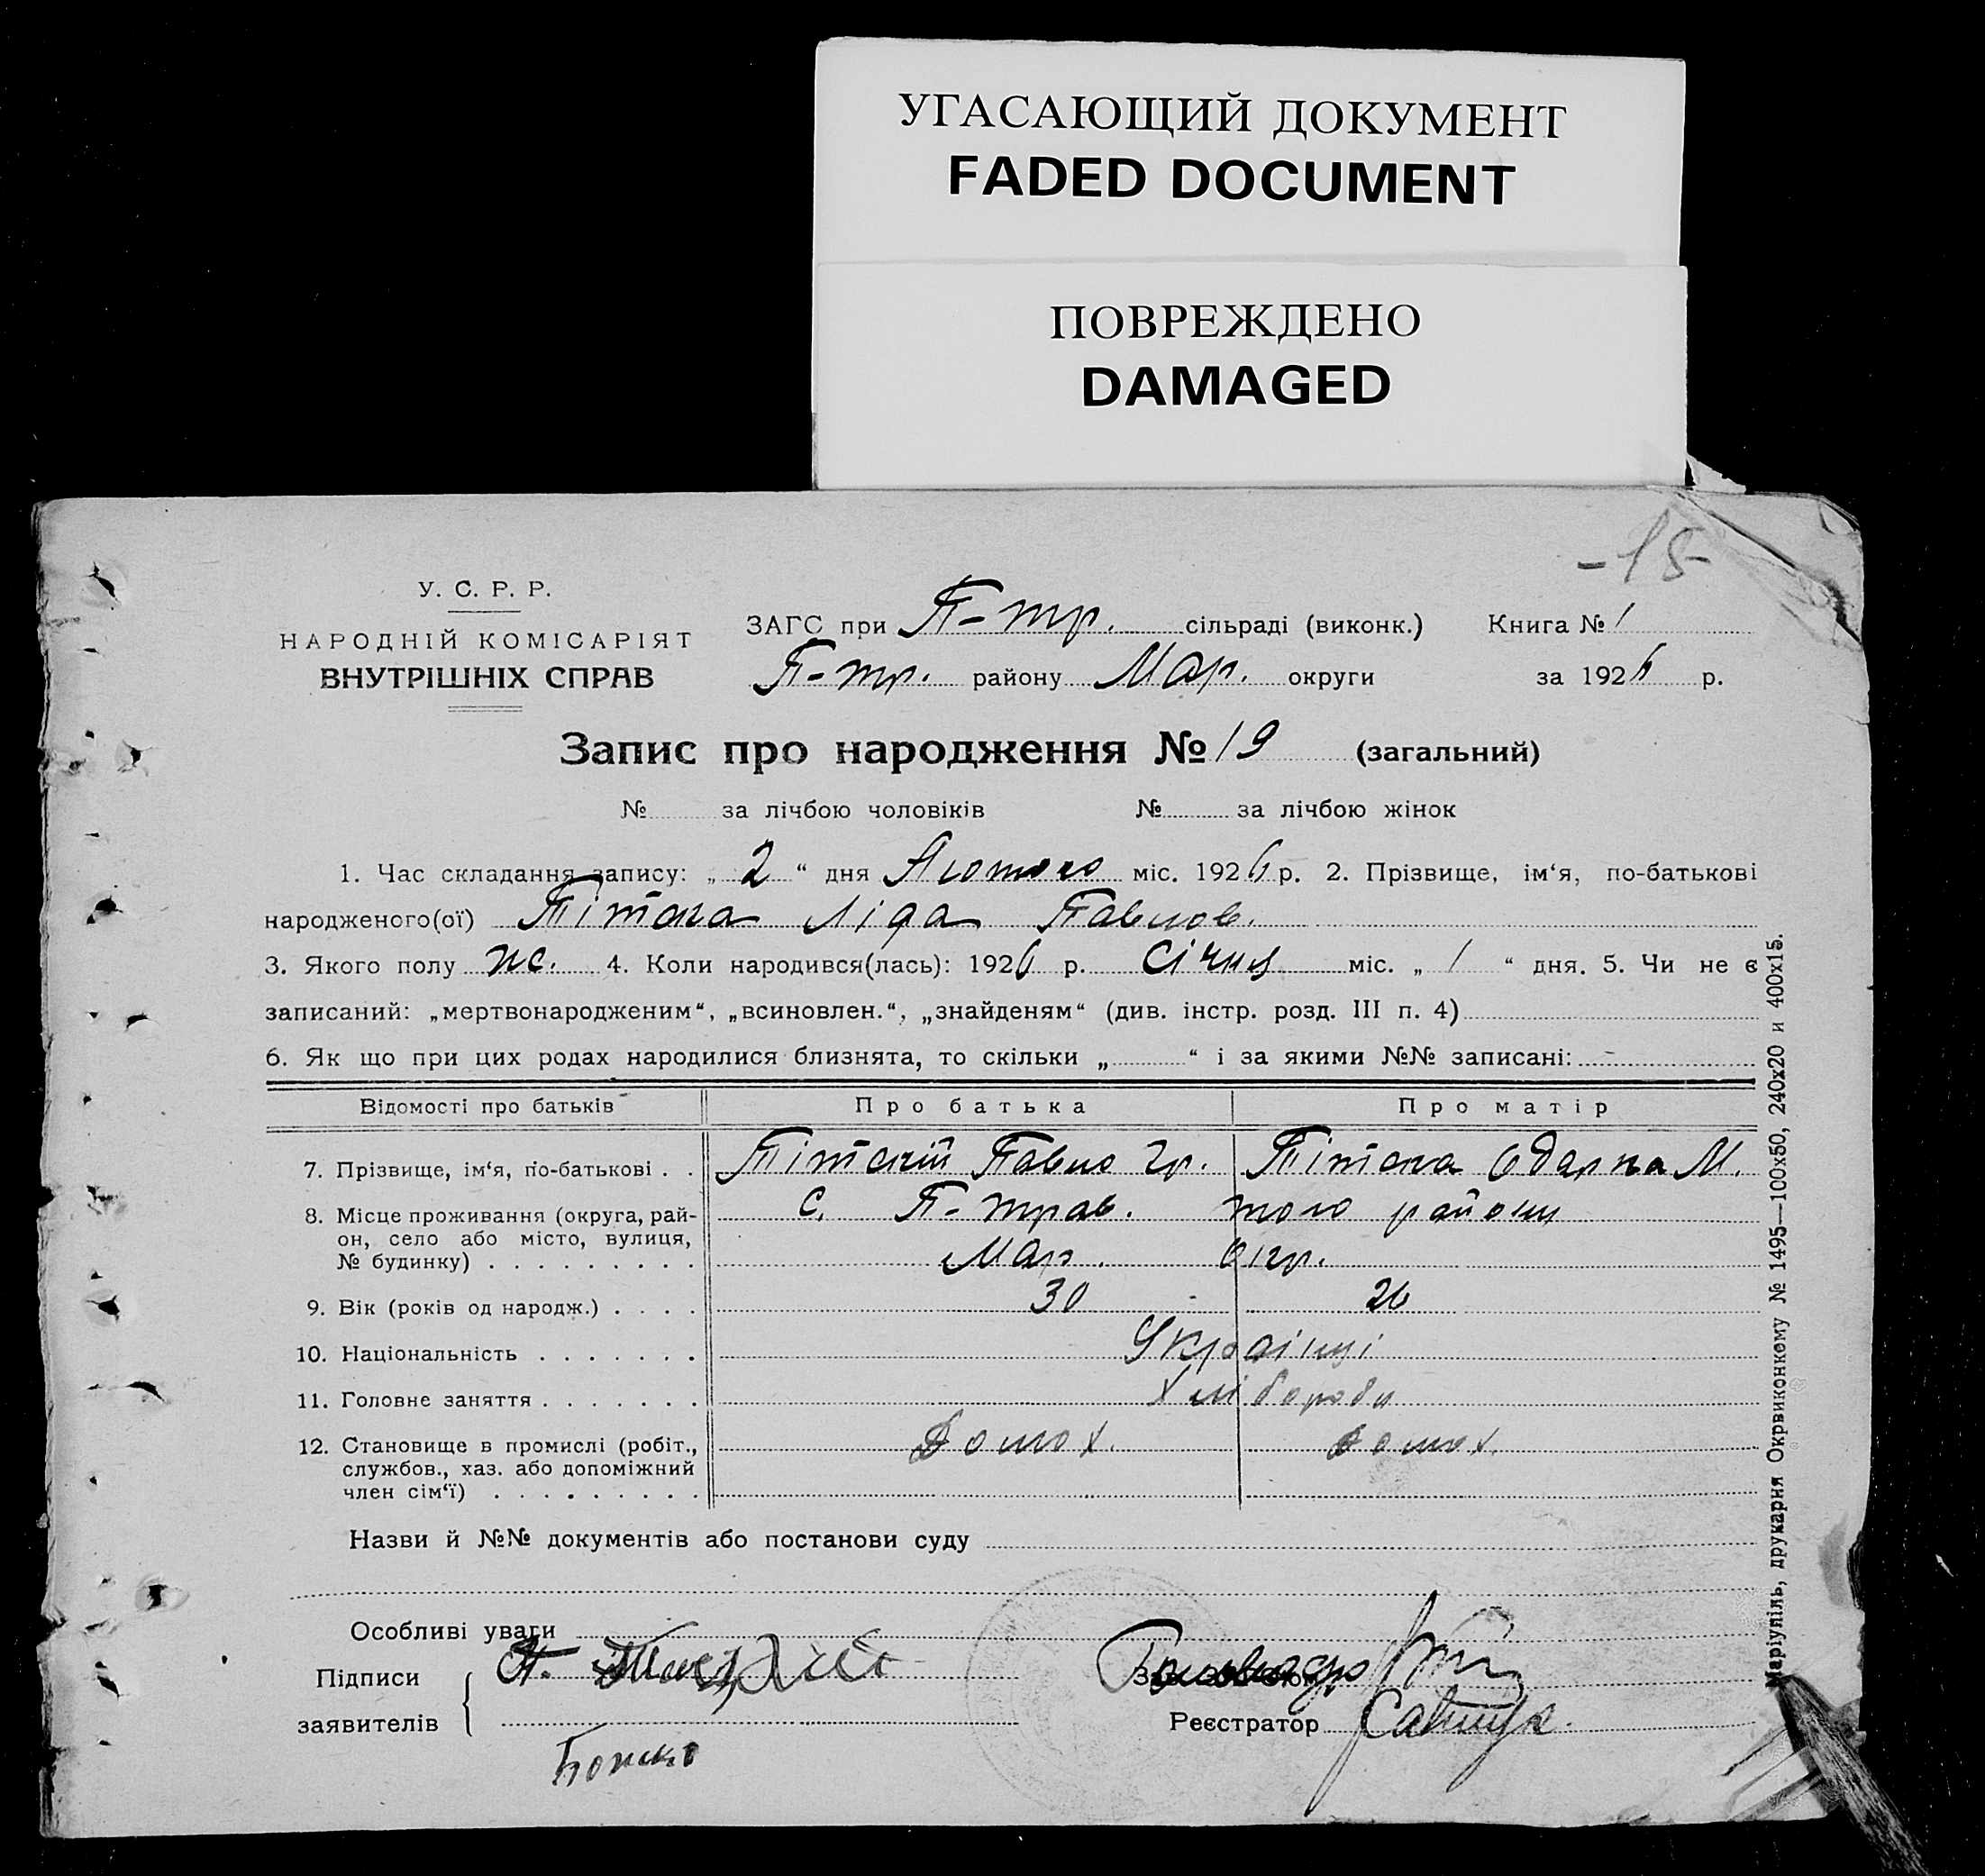 УГАСАЮЩИЙ ДОКУМЕНТ
FADED DOCUMENT
ПОВРЕЖДЕНО
DAMAGED
-15-
У. С. Р. Р.
НАРОДНІЙ КОМІСАРІЯТ
ВНУТРІШНІХ СПРАВ
ЗАГС при П-тр. сільраді (виконк.) Книга № 1
П-тр. району Мар. округи за 1926 р.
Запис про народження № 19 (загальний)
№ за лічбою чоловіків № за лічбою жінок
1. Час складання запису: „ 2 “ дня Лютого міс. 1926 р. 2. Прізвище, ім‘я, по-батькові
народженого(ої) Ліда Павлов.
3. Якого полу жс. 4. Коли народився(лась): 1926 р. Січня міс. „ 1 “ дня. 5. Чи не є
записаний: „мертвонародженим“, „всиновлен.“, „знайденям“ (див. інстр. розд. III п. 4)
6. Як що при цих родах народилися близнята, то скільки „ “ і за якими №№ записані: -
Відомості про батьків Про батька Про матір
7. Прізвище, ім‘я, по-батькові . . Павло Гр. Одарка М.
8. Місце проживання (округа, рай-
он, село або місто, вулиця,
№ будинку) . . . . . . . . .
с. П-трав. того району
Мар. окр.
9. Вік (років од народж.) . . . . 30 26
10. Національність . . . . . . . Українці
11. Головне заняття . . . . . . . Хлібороби
12. Становище в промислі (робіт.,
службов., хаз. або допоміжний
член сім‘ї) . . . . . . . . .
Домох. домох.
Назви й №№ документів або постанови суду
Особливі уваги
Підписи
заявителів
Реєстратор
Маріупіль, друкарня Окрвиконкому № 1495—100x50, 240x20 и 400x15.